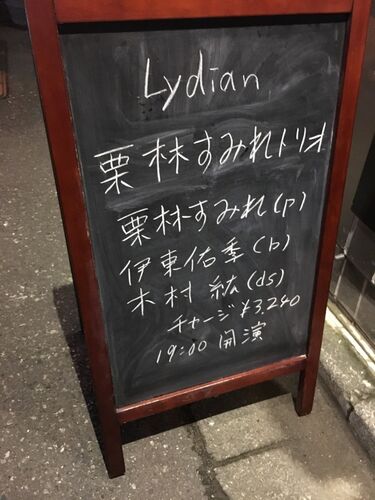 Lydian
栗林すみれトリオ
栗林すみれ(p)
伊東佑季(b)
木村紘(ds)
チャージ¥3,240
19:00 開演